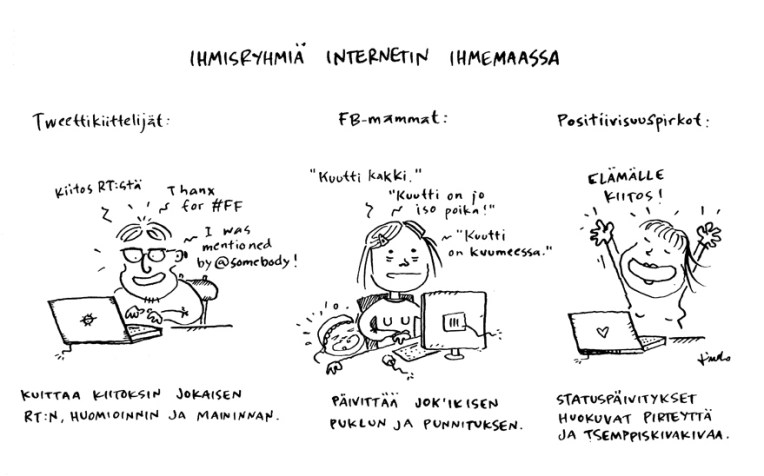 IHMISRYHMIÄ INTERNETIN IHMEMAASSA
Tweettikiittelijät:
Kiitos RT:stä
Thanx
for #FF
I was
mentioned
by @somebody!
KUITTAA KIITOKSIN JOKAISEN
RT:N, HUOMIOINNIN JA MAININNAN.
FB-mammat:
"Kuutti kakki."
"Kuutti on jo
iso poika!"
"Kuutti
on kuumeessa."
PÄIVITTÄÄ JOK'IKISEN
PUKLUN JA PUNNITUKSEN.
Positiivisuuspirkot:
ELÄMÄLLE
KIITOS!
STATUSPÄIVITYKSET
HUOKUVAT PIRTEYTTÄ
JA TSEMPPISKIVAKIVAA.